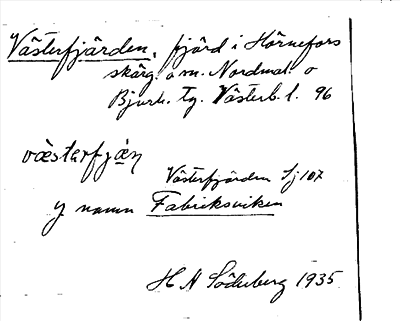 Västerfjärden, fjärd i Hörnefors
skärg. o m. Nordmal. o
Bjurh. Tg. Västerb. l. 96
væstarfjæṇ
Västerfjärden Sj 107
y namn Fabriksviken
H N Söderberg 1935